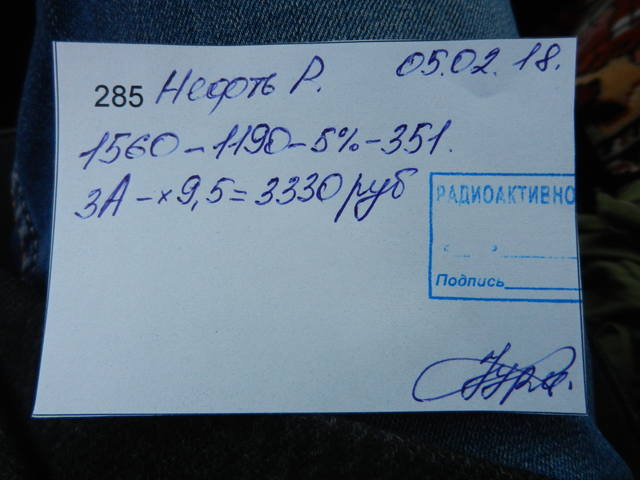 285 Нефть Р. 05.02.18.
1560-1190-5%-351.
3А-×9,5=3330 руб
РАДИОАКТИВНО
Подпись